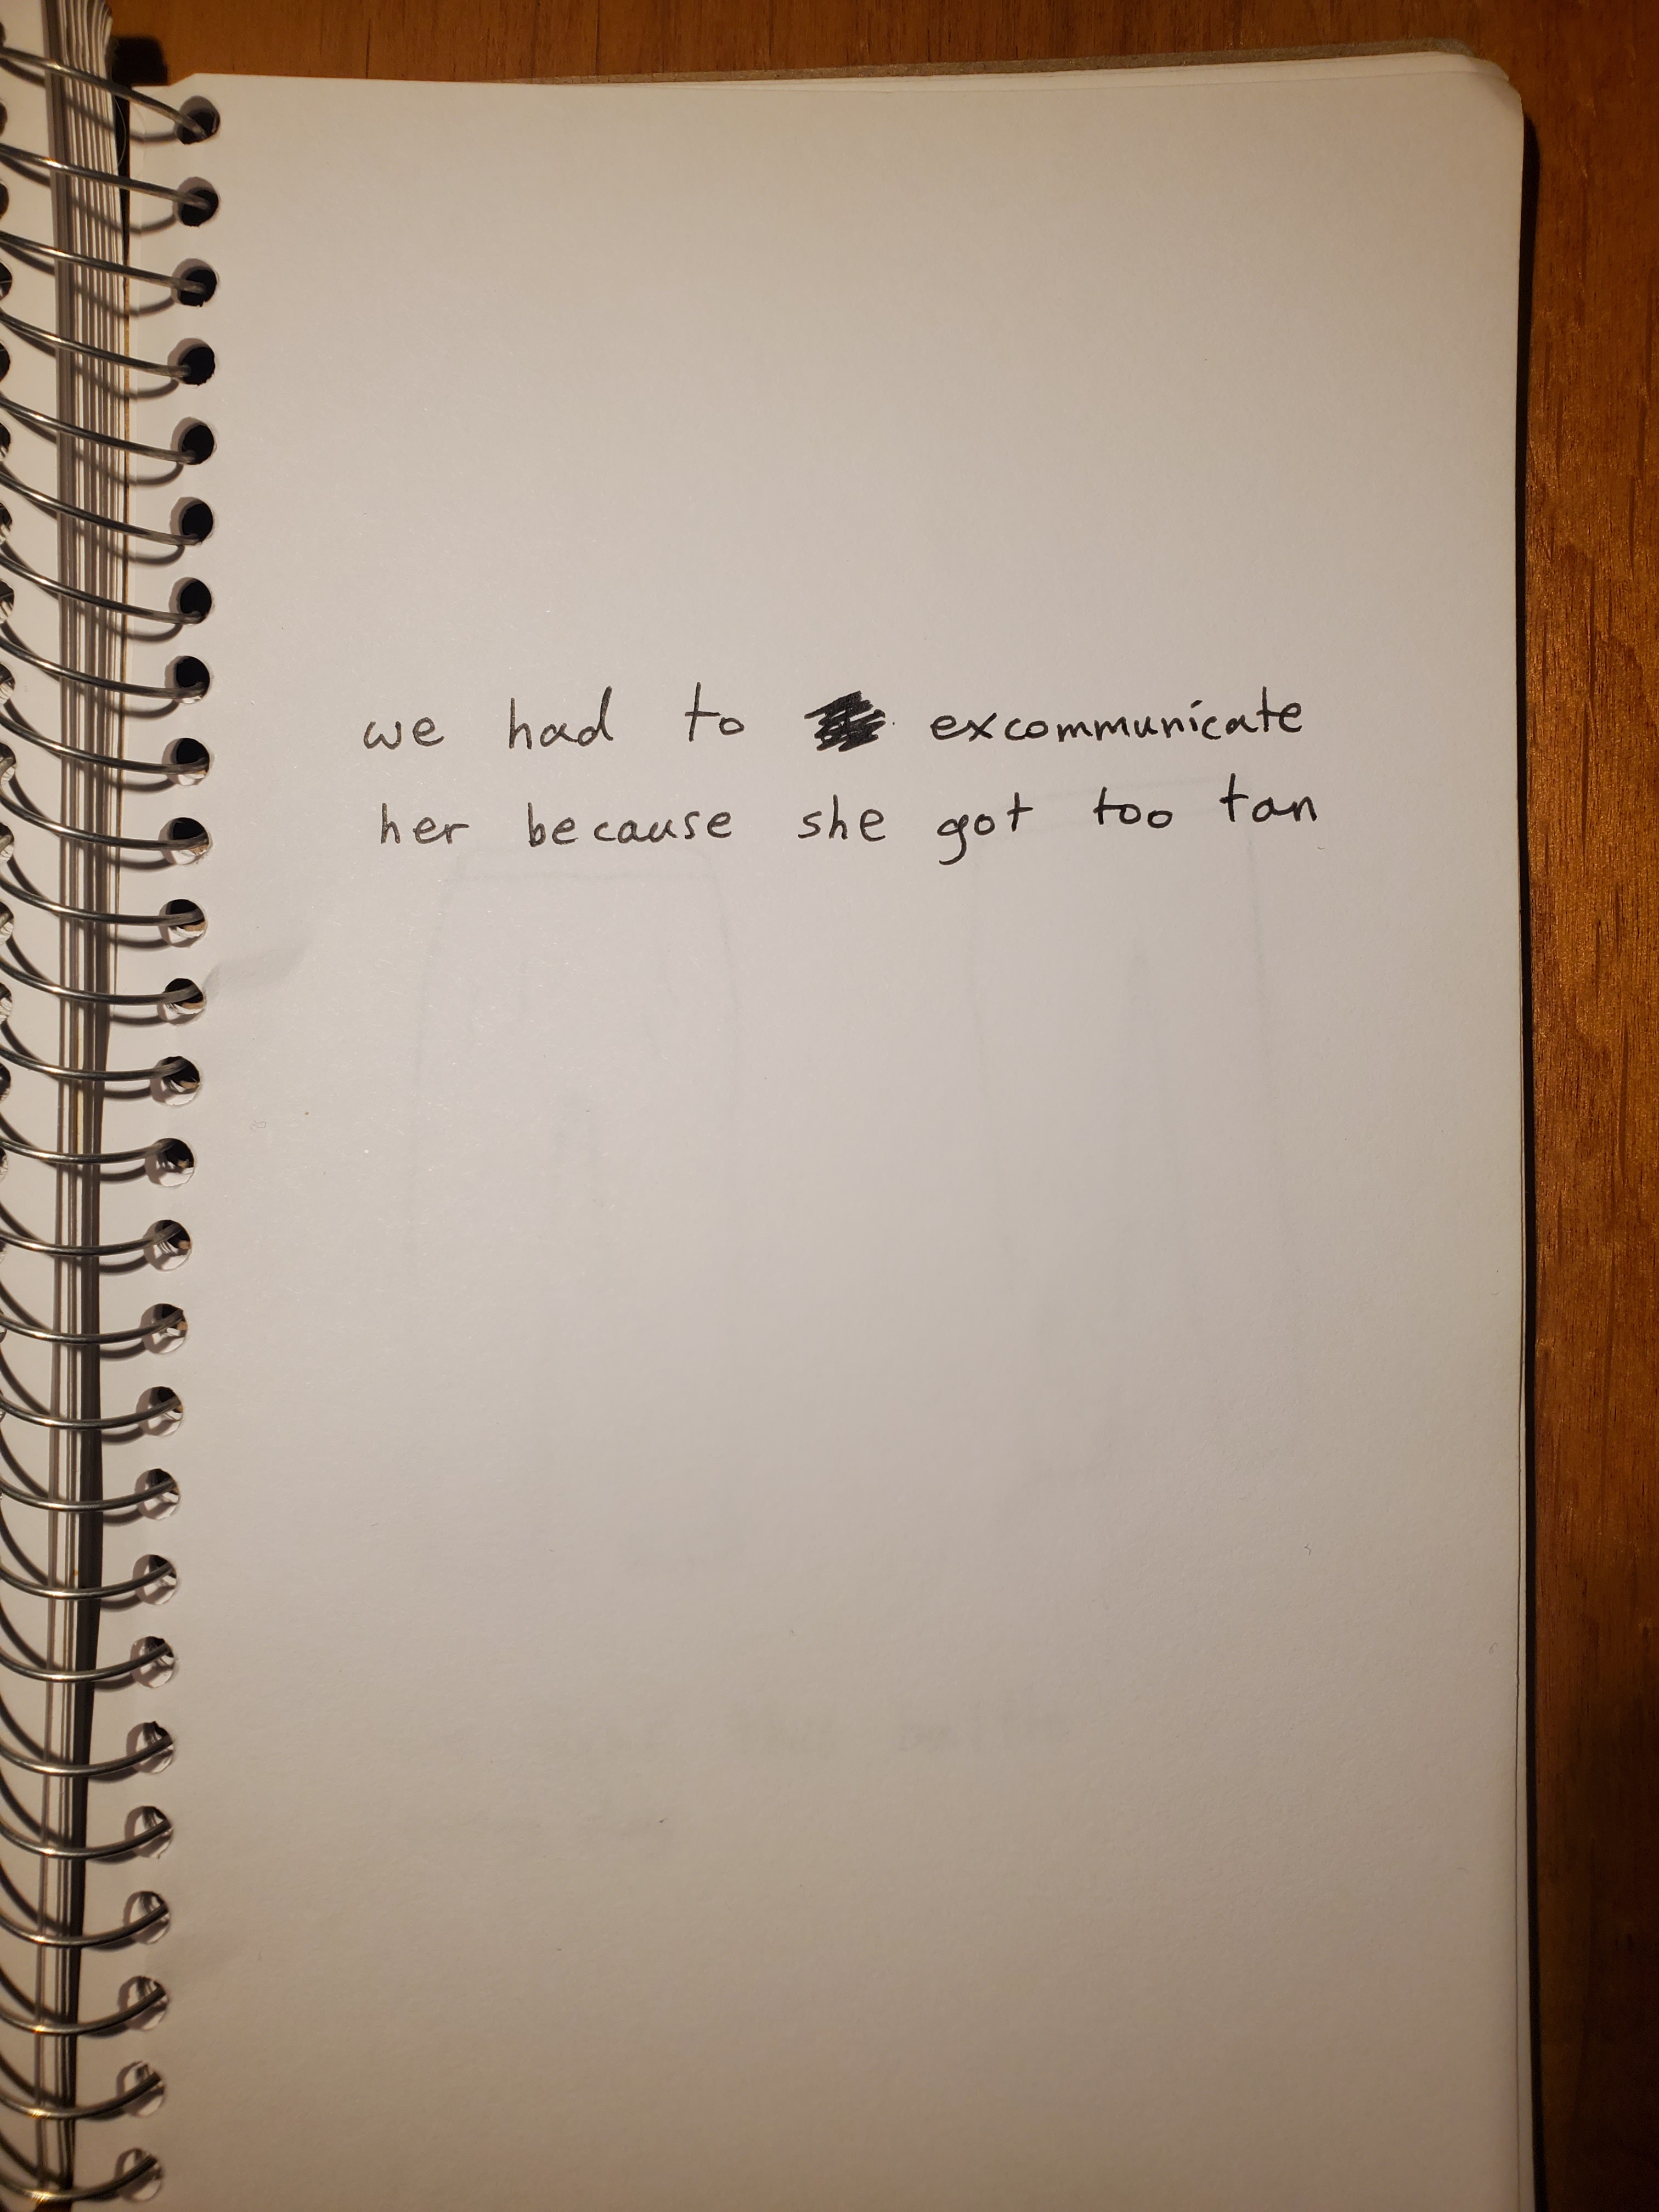 we had to excommunicate
her because she got too tan